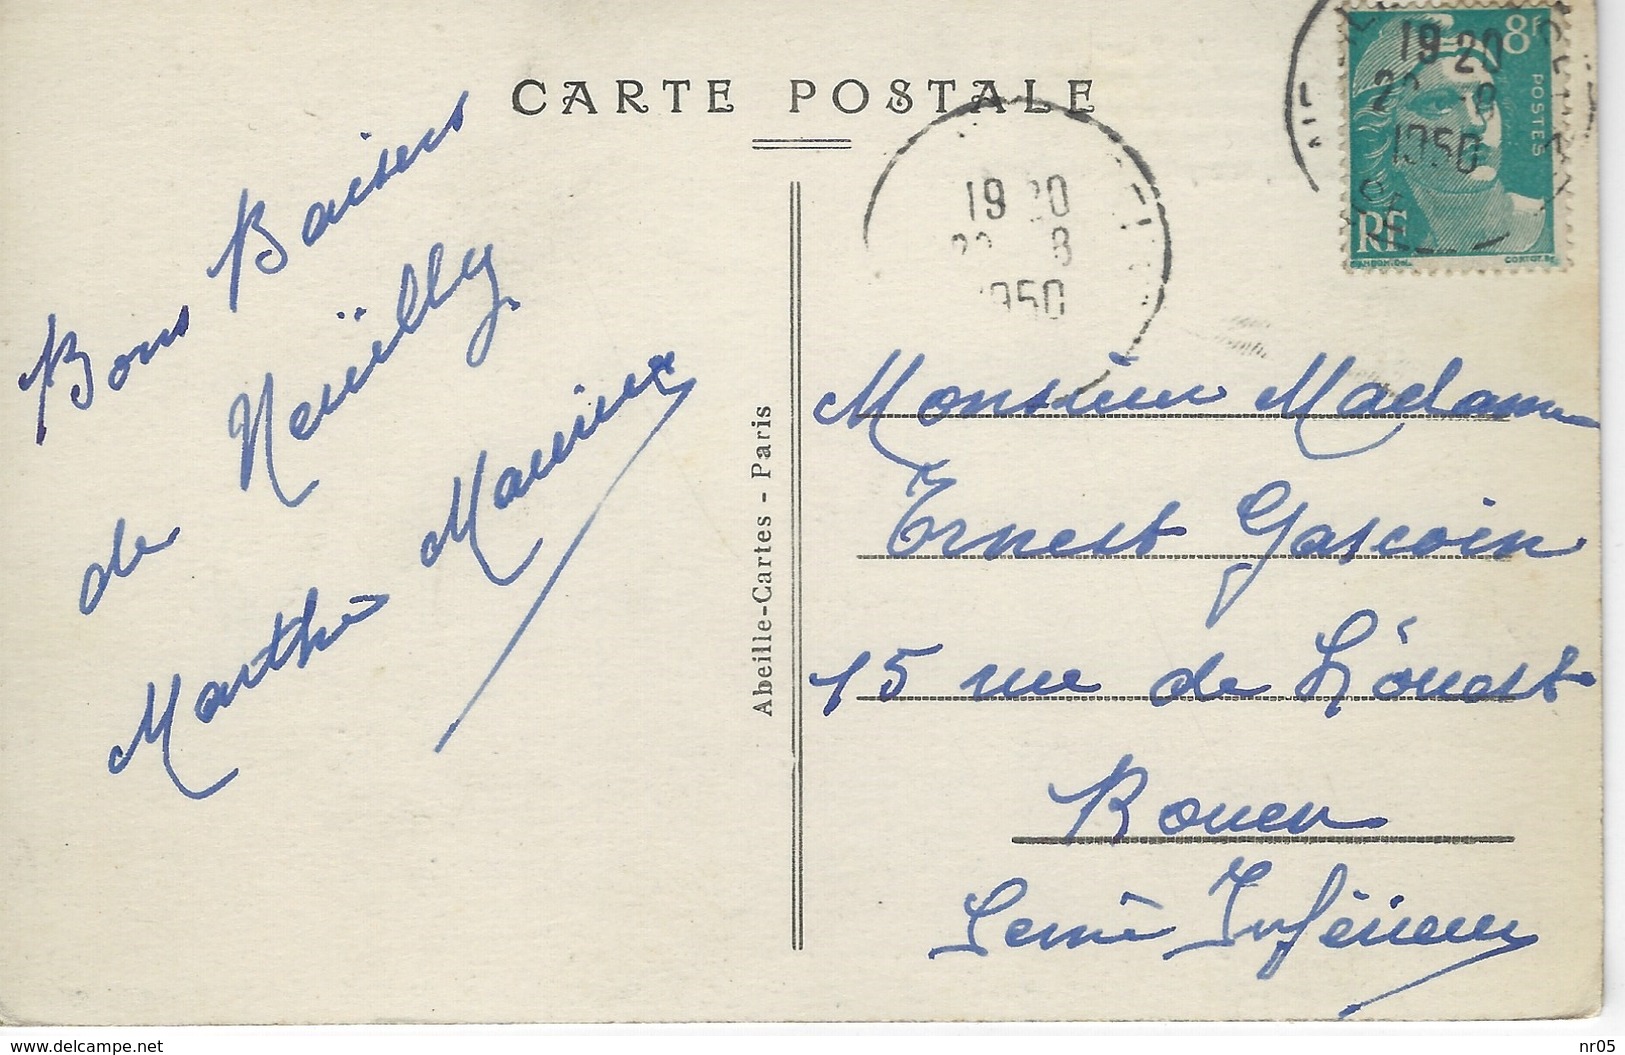 CARTE POSTALE
8F
POSTES
RF
19 20
8
1950
19 20
8
1950
Bons Baisers
de Neuïlly
Marthe
Abeille-Cartes - Paris
Monsieur Madame
Ernest Gascoin
15 rue de L'ouest
Rouen
Seine Inférieure
www.delcampe.net
nr05